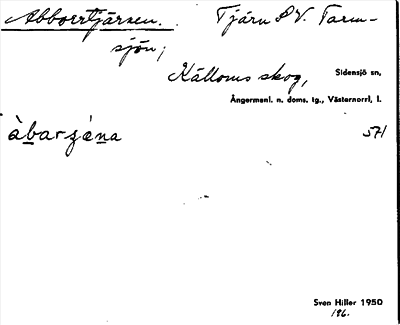 Abborrtjärnen. Tjärn S V. Tarm-
sjön;
Källoms skog, Sidensjö sn,
Ångermanl. n. doms. lg., Västernorrl. l.
àbarʒéna 571
Sven Hiller 1950
196.